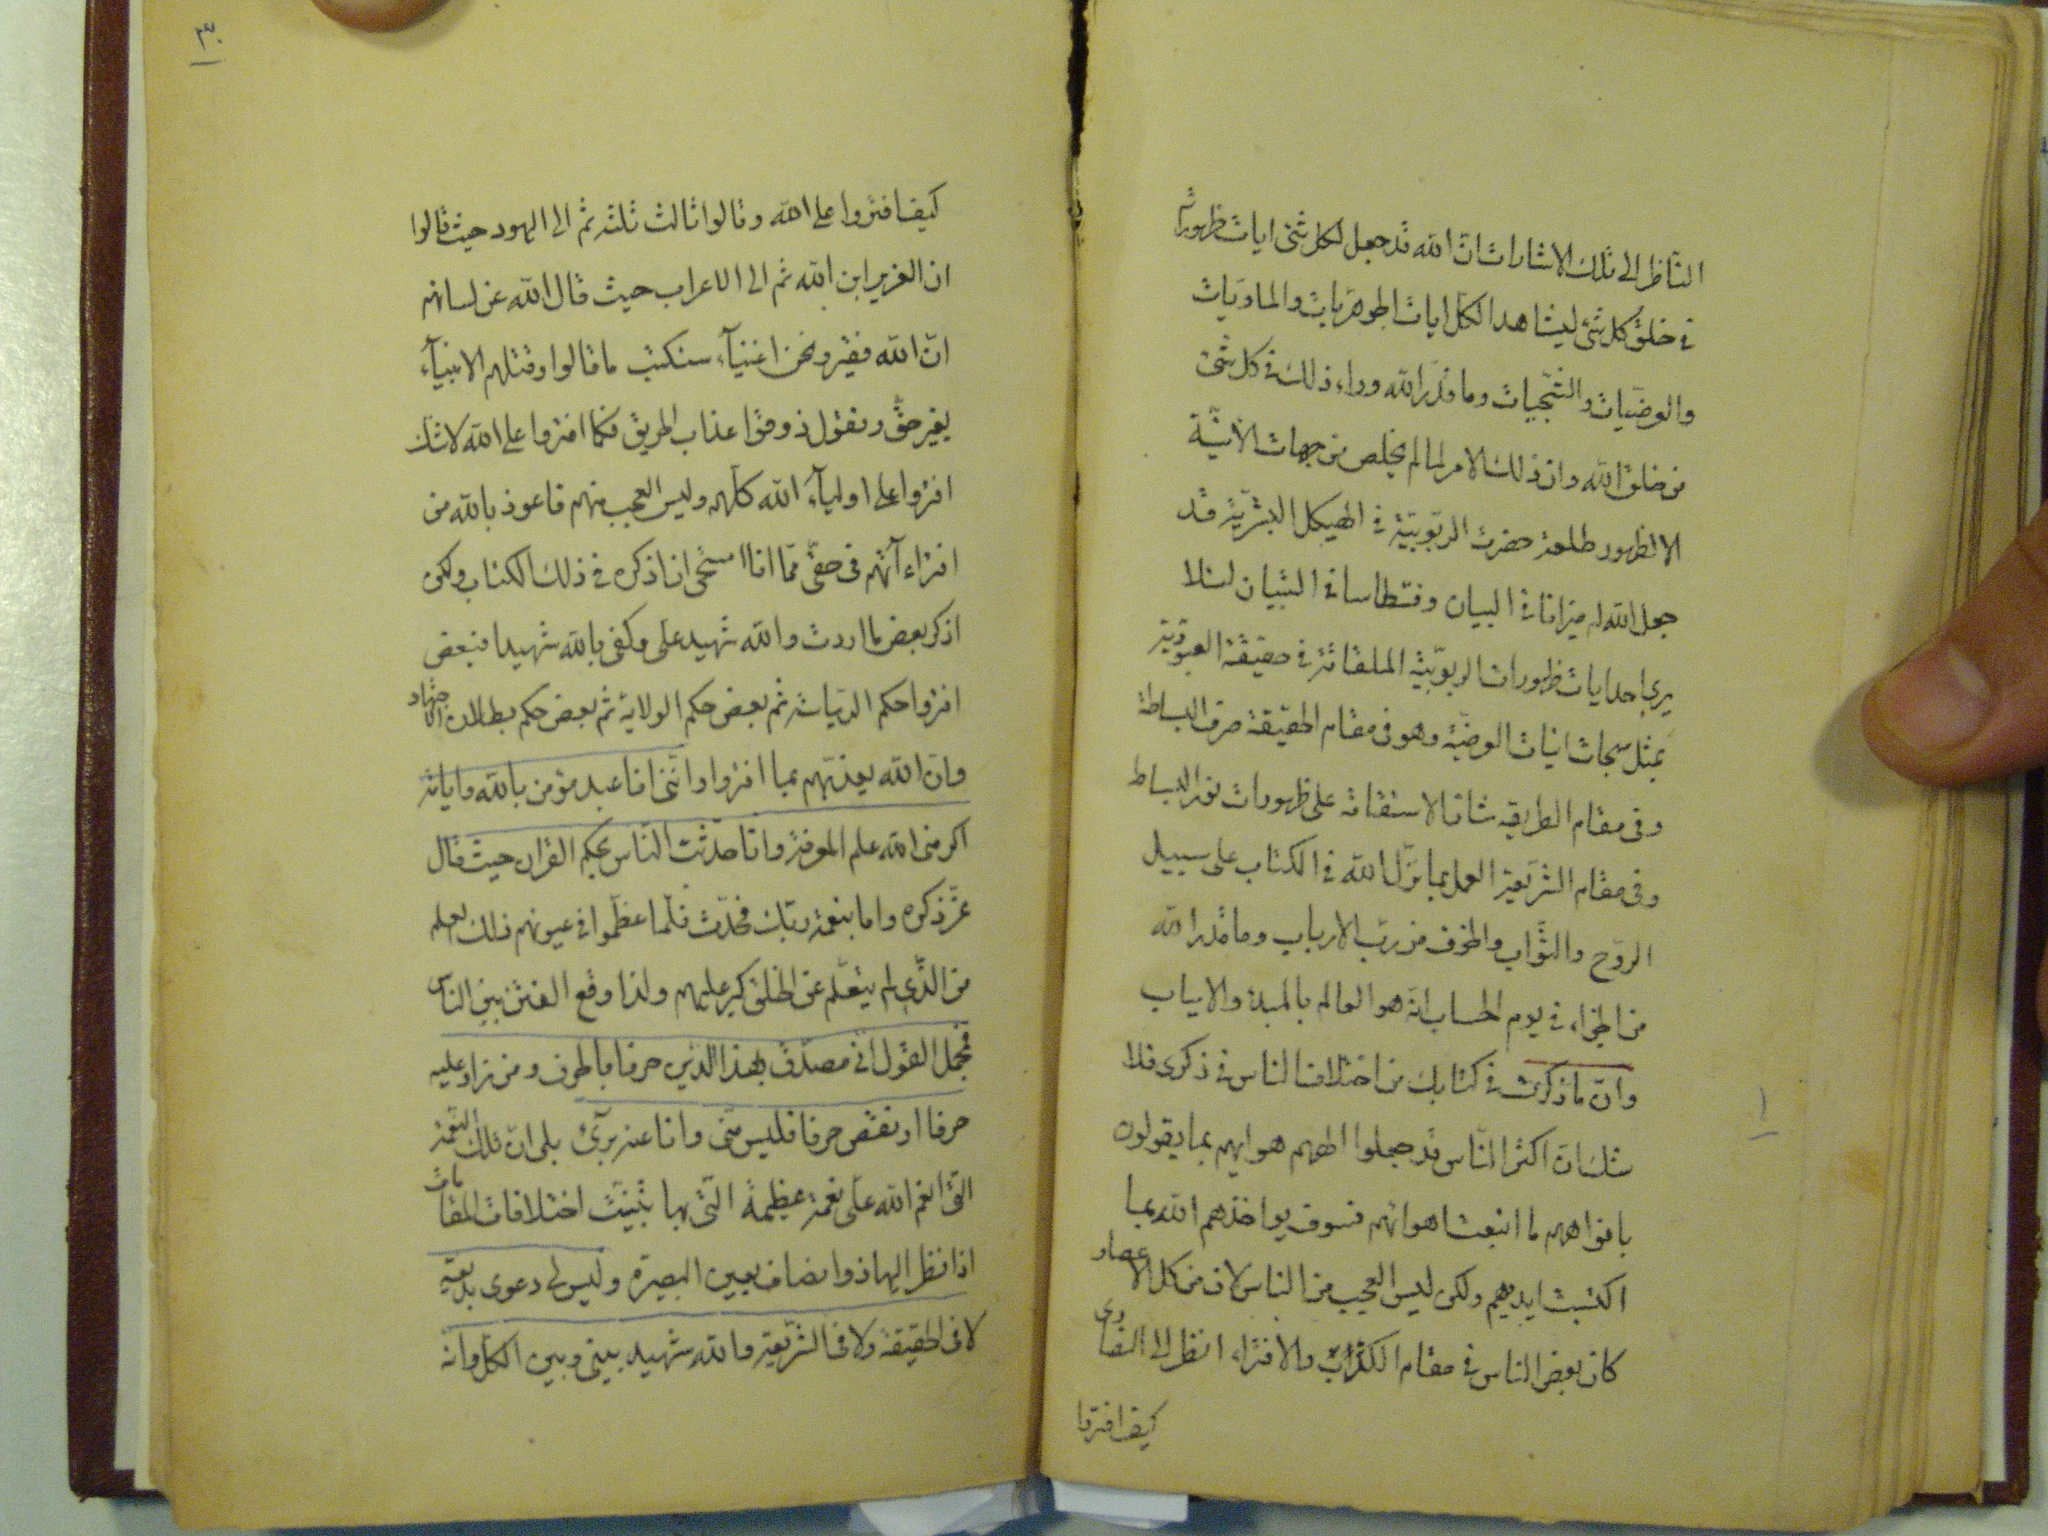 الناظر الى تلك الاشارات ان الله قد جعل لكل شئ ايات ظهوراته
فى خلق كل شئ ليشاهد الكل ايات الجوهريات والماديات
والعرضيات والشبحيات وما قدر الله وراء ذلك فى كل شئ
من خلق الله وان ذلك الامر لما لم يخلص من جهات الانية
الا لظهور طلعة حضرت الربوبية فى الهيكل البشرية قد
جعل الله له ميزانا فى البيان وقسطاسا فى التبيان لئلا
يرى احد ايات ظهورات الربوبية الملقاة فى حقيقة العبودية
بمثل سبحات انيات العرضية وهو فى مقام الحقيقة صرف البساطة
وفى مقام الطريقة شان الاستقامة على ظهورات نور البساط
وفى مقام الشريعة العمل بما نزل الله فى الكتاب على سبيل
الروح والثواب والخوف من رب الارباب وما قدر الله
من الجزاء فى يوم الحساب انه هو العالم بالمبدء والاياب
وان ما ذكرت فى كتابك من اختلاف الناس فى ذكرى فلا
شك ان اكثر الناس قد جعلوا الههم هوايهم بما يقولون
بافواههم ما اتبعت اهوائهم فسوف يواخذهم الله بما
اكتسبت ايديهم ولكن ليس العجب من الناس لان من كل الاعصار
كان بعض الناس فى مقام الكذب والافتراء انظر الى النصارى
كيف افتروا
١
٣٠
كيف افتروا على الله وقالوا ثالث ثلثه ثم الى اليهود حيث قالوا
ان العزير ابن الله ثم الى الاعراب حيث قال الله عن لسانهم
ان الله فقير ونحن اغنيآء سنكتب ما قالوا وقتلهم الانبيآء
بغير حق ونقول ذوقوا عذاب الحريق فكما افتروا على الله لا شك
افتروا على اوليآء الله كلهم وليس العجب منهم فاعوذ بالله من
افتراء آتهم فى حقى مما انا استحى ان اذكره فى ذلك الكتاب ولكن
اذكر بعض ما اردت والله شهيد على وكفى بالله شهيدا فبعض
افتروا حكم الربيات ثم بعض حكم الولاية ثم بعض حكم بطلان الاجتهاد
وان الله يعذبهم بما افتروا واننى انا عبد مؤمن بالله واياته
اكرمنى الله علم المعرفة وانا حدثت الناس بحكم القران حيث قال
عز ذكره واما بنعمة ربك فحدث فلما عظموا فى عيونهم ذلك العلم
من الذى لم يتعلم عن الخلق كبر عليهم ولذا وقع الفتن بين الناس
فمجمل القول انى مصدق بهذا الدين حرفا بالحرف ومن زاد عليه
حرفا او نقص حرفا فليس منى وانا عنه برئ بلى ان تلك النعمة
التى انعم الله على نعمة عظيمة التى بها تبينت اختلافات المقامات
اذا نظر اليها ذو انصاف بعين البصيرة وليس لى دعوى بدعية
لا فى الحقيقة ولا فى الشريعة والله شهيد بينى وبين الكل وانه